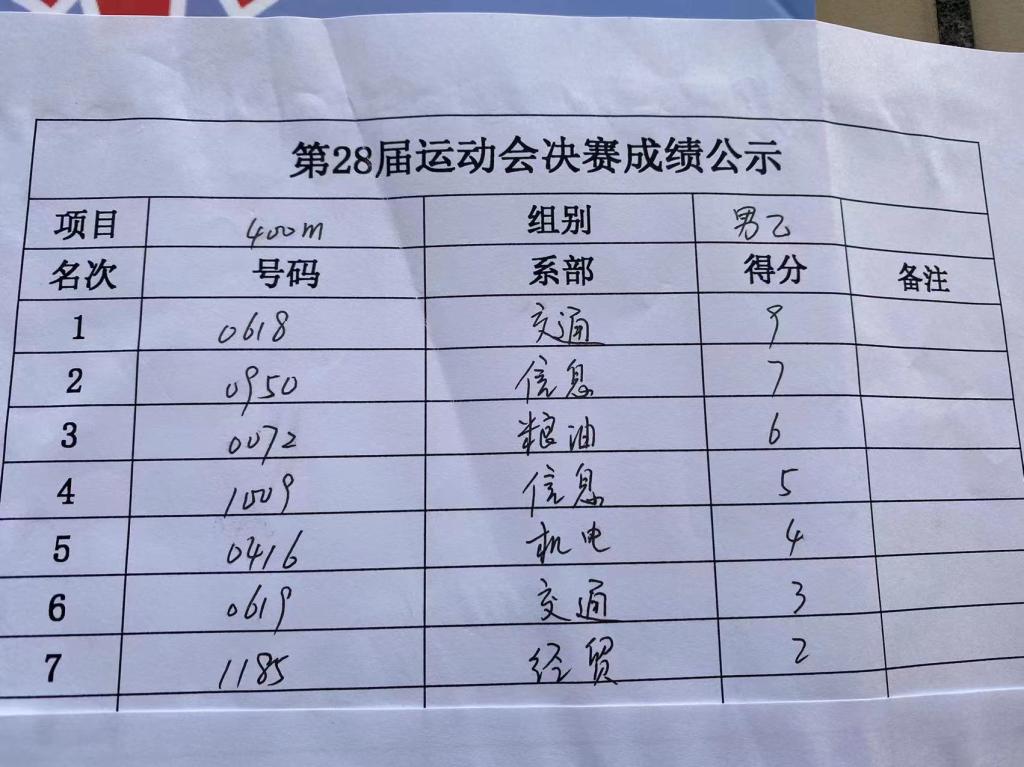 第28届运动会决赛成绩公示
项目 400m 组别 男乙
名次 号码 系部 得分 备注
1 0618 交通 9
2 0950 信息 7
3 0072 粮油 6
4 1009 信息 5
5 0416 机电 4
6 0619 交通 3
7 1185 经贸 2